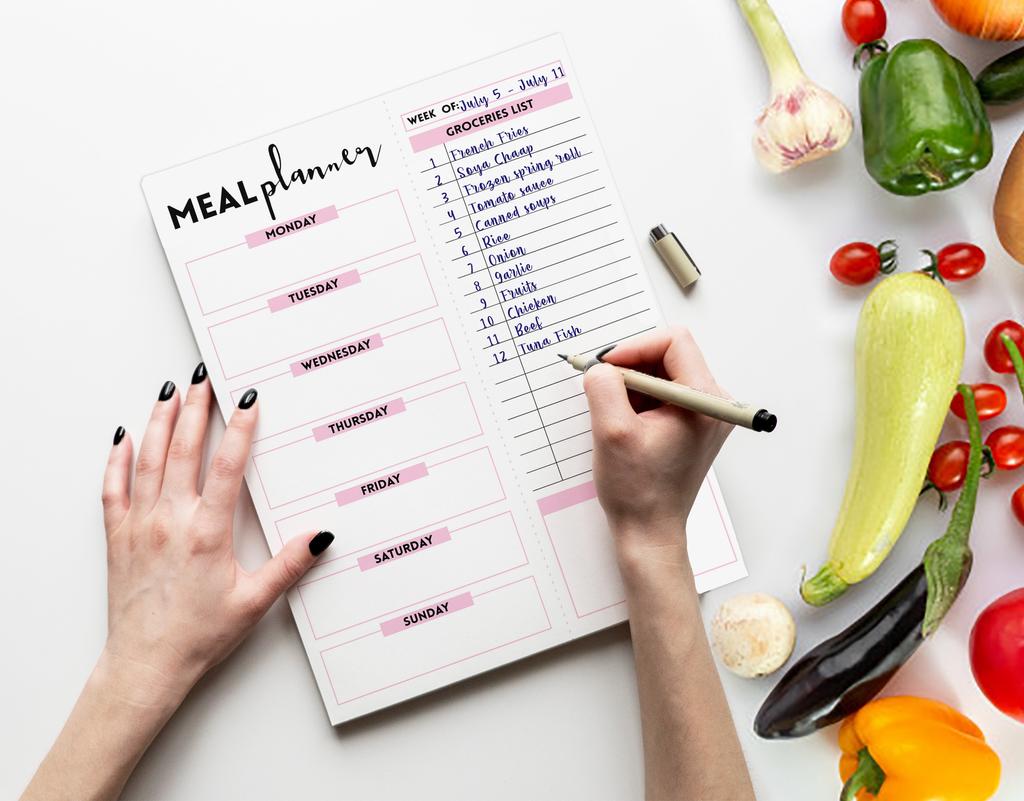 MEAL planner
MONDAY
TUESDAY
WEDNESDAY
THURSDAY
FRIDAY
SATURDAY
SUNDAY
WEEK OF: July 5 - July 11
GROCERIES LIST
1 French Fries
2 Soya Chaap
3 Frozen spring roll
4 Tomato sauce
5 Canned soups
6 Rice
7 Onion
8 garlic
9 Fruits
10 Chicken
11 Beef
12 Tuna Fish